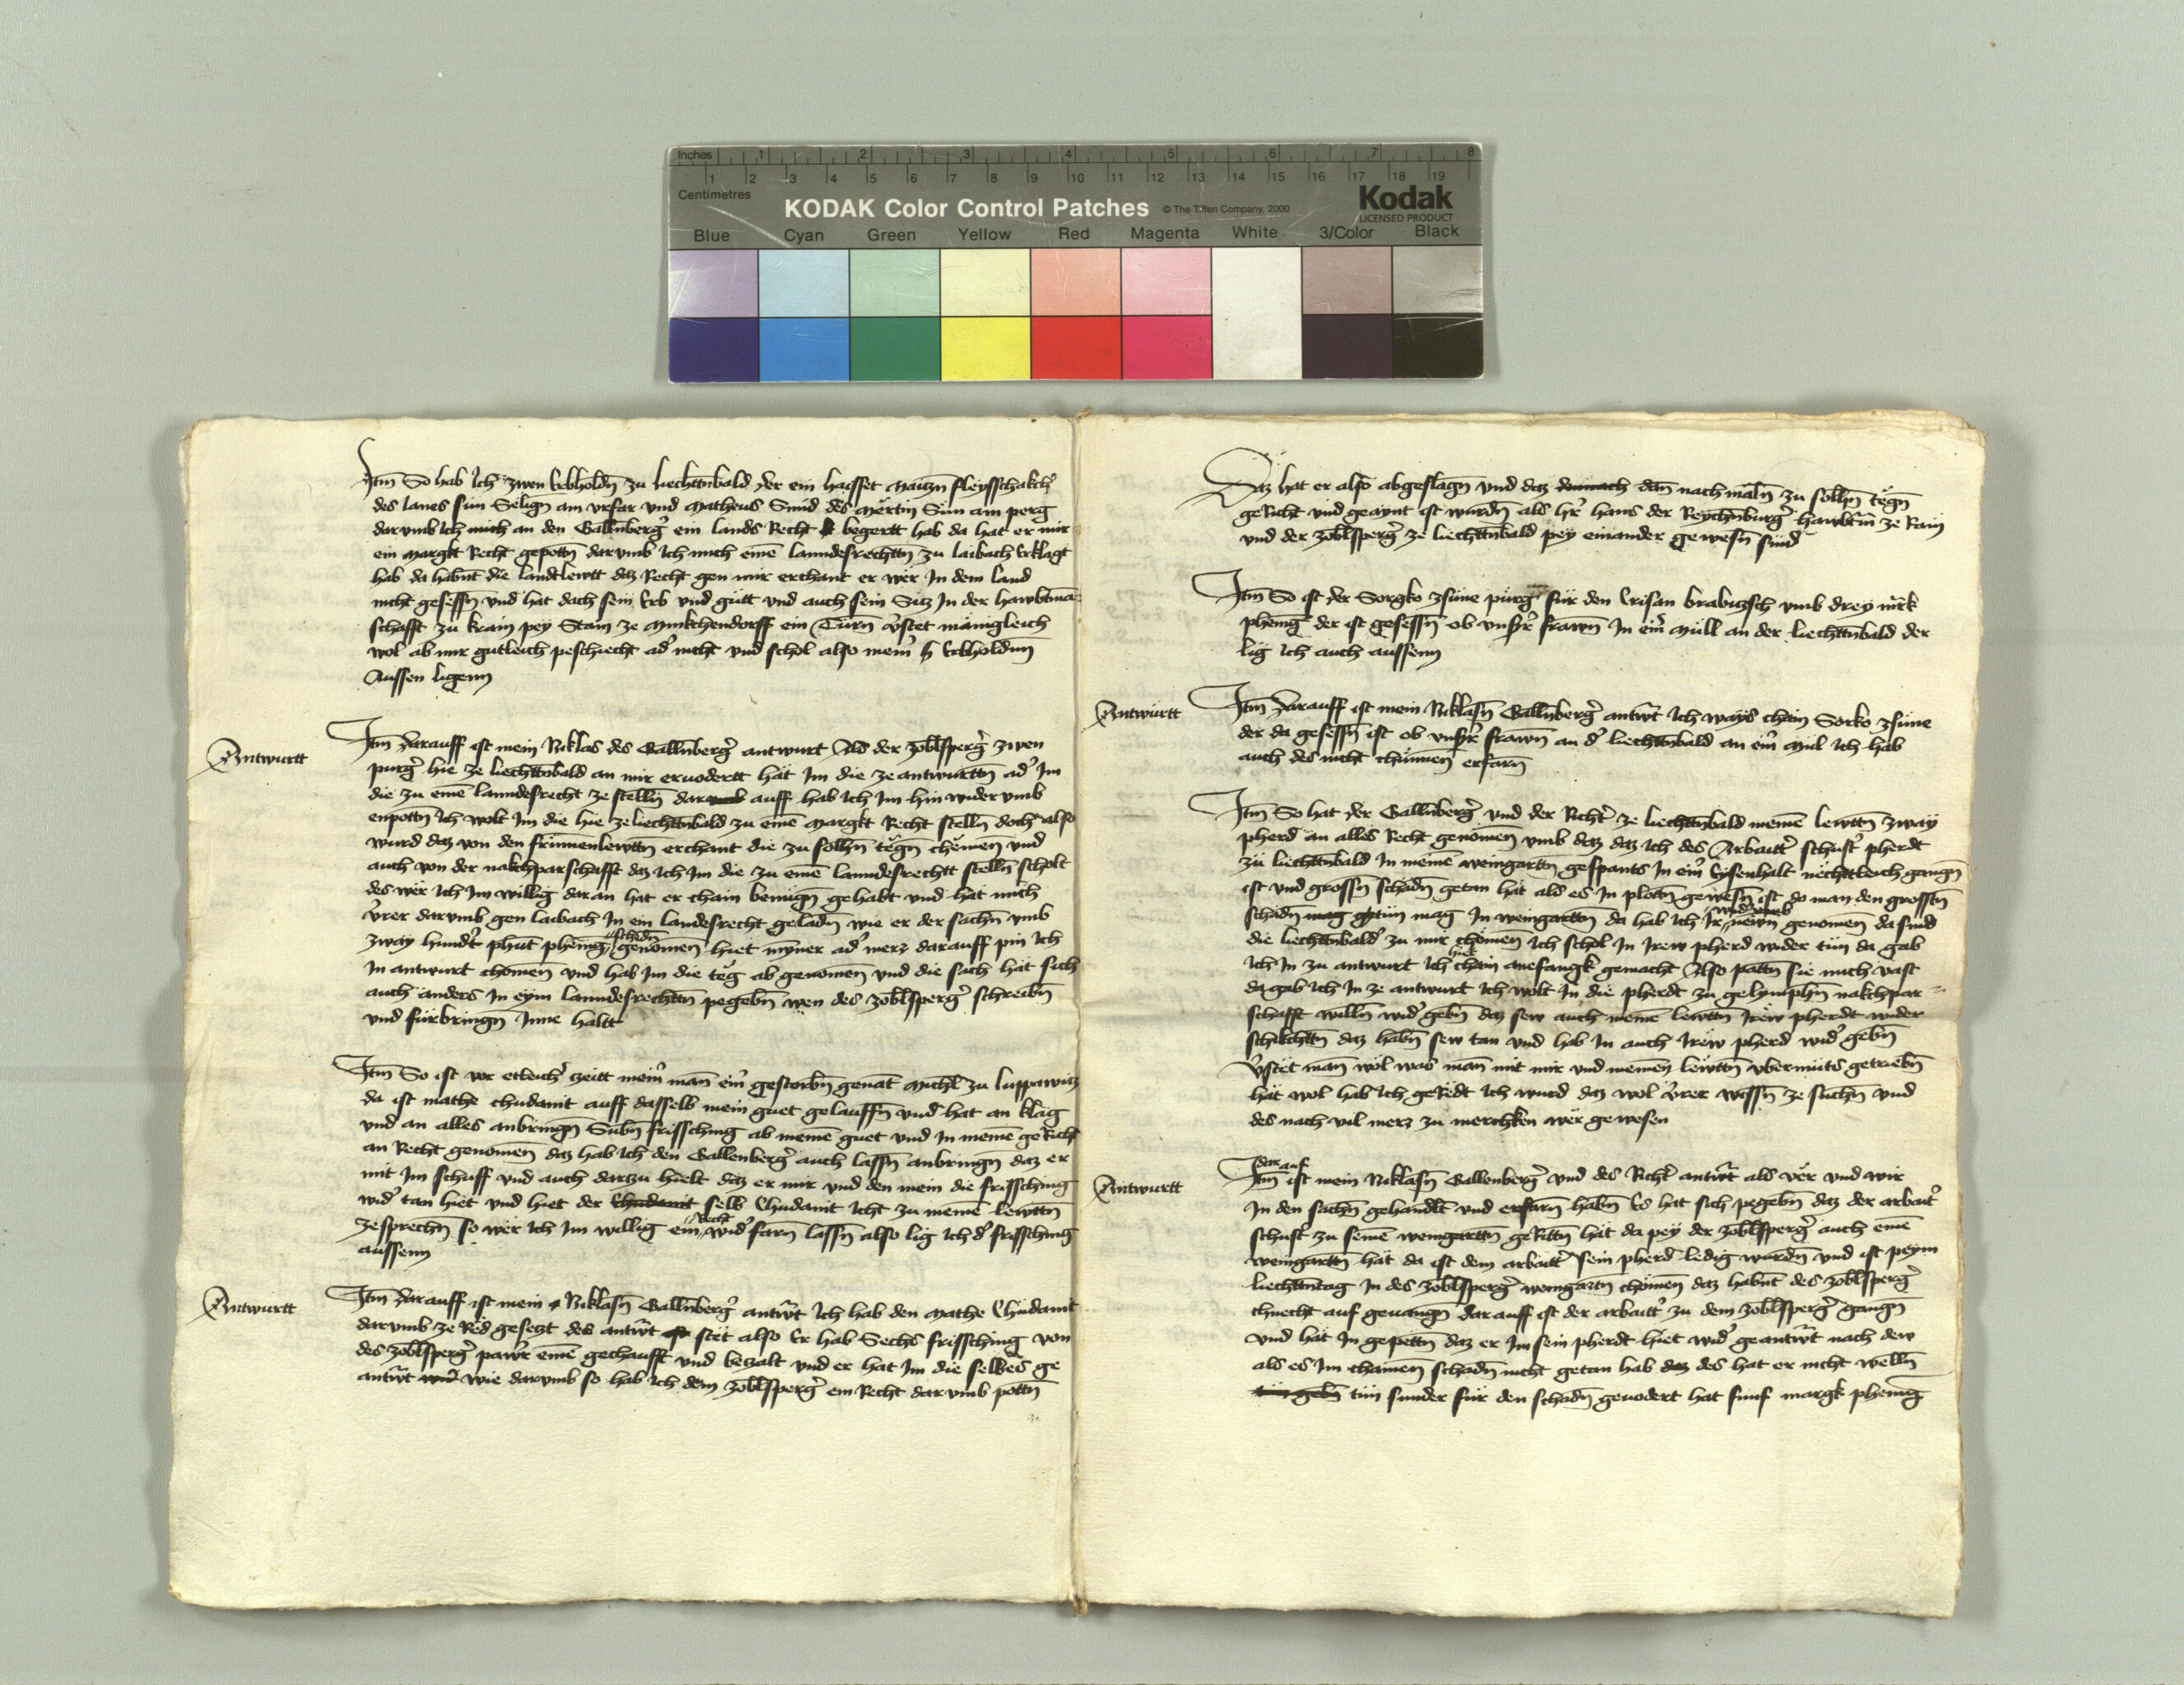 Inches 1 2 3 4 5 6 7 8
Centimetres 1 2 3 4 5 6 7 8 9 10 11 12 13 14 15 16 17 18 19
KODAK Color Control Patches © The Tiffen Company, 2000 Kodak
LICENSED PRODUCT
Blue Cyan Green Yellow Red Magenta White 3/Color Black
Itm So hab Ich zwen Erbholdn zu liechttnbald der ein haysset Mautzn fleysschakcher
des lanes sun Seligen am vrfar vnd Matheus Smid des Mertin Sun am perg
darvmb Ich mich an den Gallnberger ein lands Recht begertt hab da hat er mir
ein Margkt Recht gepottn darvmb Ich mich eine lanndesrechttn zu laibach Erklagt
hab da habnt die landtlewtt daz Recht gen mir erchant er wer In dem land
nicht gesessn vnd hat dach sein Erb vnd gutt vnd auch sein Sitz In der hawbtma
schafft zu krain pey Stain ze Munkchendorff ein Turn vstet manigleich
wol ab mir gutleich peschiecht ader nicht vnd schol also meinr Erbholdnn
Aussen ligenn
Antwurtt
Itm darauff ist mein Niklas des Gallnberger antwurt Als der zoblsperger zwen
purger hie ze liechttnbald an mir eruodertt hat Im die ze antwurttn ader Im
die zu eine lanndesrecht ze stelln auff hab Ich Im hin wider vmb
enpottn Ich wolt Im die hie ze liechttnbald zu eine Margkt Recht stelln doch also
wurd daz von den frumenlewttn erchant die zu sollhn tegn chemen vnd
auch von der nakchparschafft daz Ich Im die zu eine lanndesrechtt stelln scholt
des wer Ich Im willig daran hat er chain benugn gehabt vnd hat mich
vrer darvmb gen laibach In ein landesrecht geladn wie er der sachn vmb
zway hundert phunt phenig schadn genomen hiet myner ader merz darauff pin Ich
In antwurt chomen vnd hab Im die teg ab genomen vnd die sach hat sich
auch anders In eym lanndesrechttn pegebn wen des zoblsperger schreibn
vnd furbringn Inne haltt
Itm So ist vor etleicher zeitt meinr man einr gestorbn genat Michl zu luppawitz
da ist mathe chudamit auff dasselb mein guet gelauffn vnd hat an klag
vnd an alles anbringn Subn frissching ab meine guet vnd In meine geRicht
an Recht genomen daz hab Ich den Gallenberger auch lassn anbringn daz er
mit Im schuff vnd auch darzu hielt daz er mir vnd den mein die frissching
wider tan hiet vnd hiet der selb Chudamit Icht zu meine lewttn
ze sprechn so wer Ich Im willig ein Recht wider farn lassn also lig Ich der frissching
aussenn
Antwurtt
Itm darauff ist mein Niklasn Gallnberger antwrt Ich hab den Mathe Chudamit
darvmb ze Red gesetzt des antwrt stet also Er hab Sechs frissching von
des zoblsperger pawr eine gechaufft vnd betzalt vnd er hat Im die selbes ge
antwrt wie darvmb so hab Ich dem zoblsperger ein Recht darvmb pottn
Daz hat er also abgeslagn vnd daz dan nach maln zu sollhn tegn
geRicht vnd geaynt ist wurdn als her hans der Reychnburger hawbtm ze Rain
vnd der zoblsperger ze liechttnbald pey einander gewesn sind
Itm So ist der Sorgko zsune purg fur den Crisan brabitzsch vmb drey mrk
phenig der ist gesessn ob vnsrr frawn In einr Mull an der liechttnbald der
lig Ich auch aussenn
Antwurtt
Itm darauff ist mein Niklasn Gallnberger antwrt Ich ways chain Sorko zsune
der da gesessn ist ob vnsrr frawn an der liechttnbald an einr mul Ich hab
auch des nicht chunnen erfarn
Itm So hat der Gallnberger vnd der Richter ze liechttnbald meine lewttn zway
pherd an alles Recht genomen vmb daz daz Ich des Arbaitter schuster pherdt
zu liechttnbald In meine weingarttn gespants In einr Eysenhalt nechttleich gangn
ist vnd grossn schadn getan hat als es In plottn gewesn ist do man den grosstn
schadn mag In weingarttn da hab Ich Ir newn genomen da sind
die liechttnbalder zu mir chomen Ich schol In Irew pherd wider tun da gab
Ich In zu antwurt Ich het chain anefangk gemacht Also pattn sie mich vast
da gab Ich In ze antwurt Ich wolt In die pherdt zu gelymphn nakchpar
schafft willn wider gebn daz sew auch meine lewttn Irew pherdt wider
schikchttn daz habn sew tan vnd hab In auch Irew pherd wider gebn
vstet man wol was man mit mir vnd meinen lewttn vbermuts getriebn
hat wol hab Ich geRedt Ich wurd daz wol vrer wissn ze suchn vnd
des nach vil merz zu merchken wer gewesen
Antwurtt
Itm dar auf ist mein Niklasn Gallenberger vnd des Richter antwrt als ver vnd wir
In den sachn gehandlt vnd erfarn habn Es hat sich pegebn daz der arbaiter
schuster zu seine weingarttn geRittn hat da pey der zoblsperger auch eine
weingarttn hat da ist dem arbaitter sein pherd ledig wurdn vnd ist peym
liechttntag In des zoblsperger weingartn chomen daz habnt des zoblsperger
chnecht auf geuangn darauff ist der arbaitter zu dem zoblsperger gangn
vnd hat In gepettn daz er Im sein pherdt hiet wider geantwrt nach dem
als es Im chainen schadn nicht getan hab des hat er nicht welln
tun sunder fur den schadn geuodert hat funf margk phenig